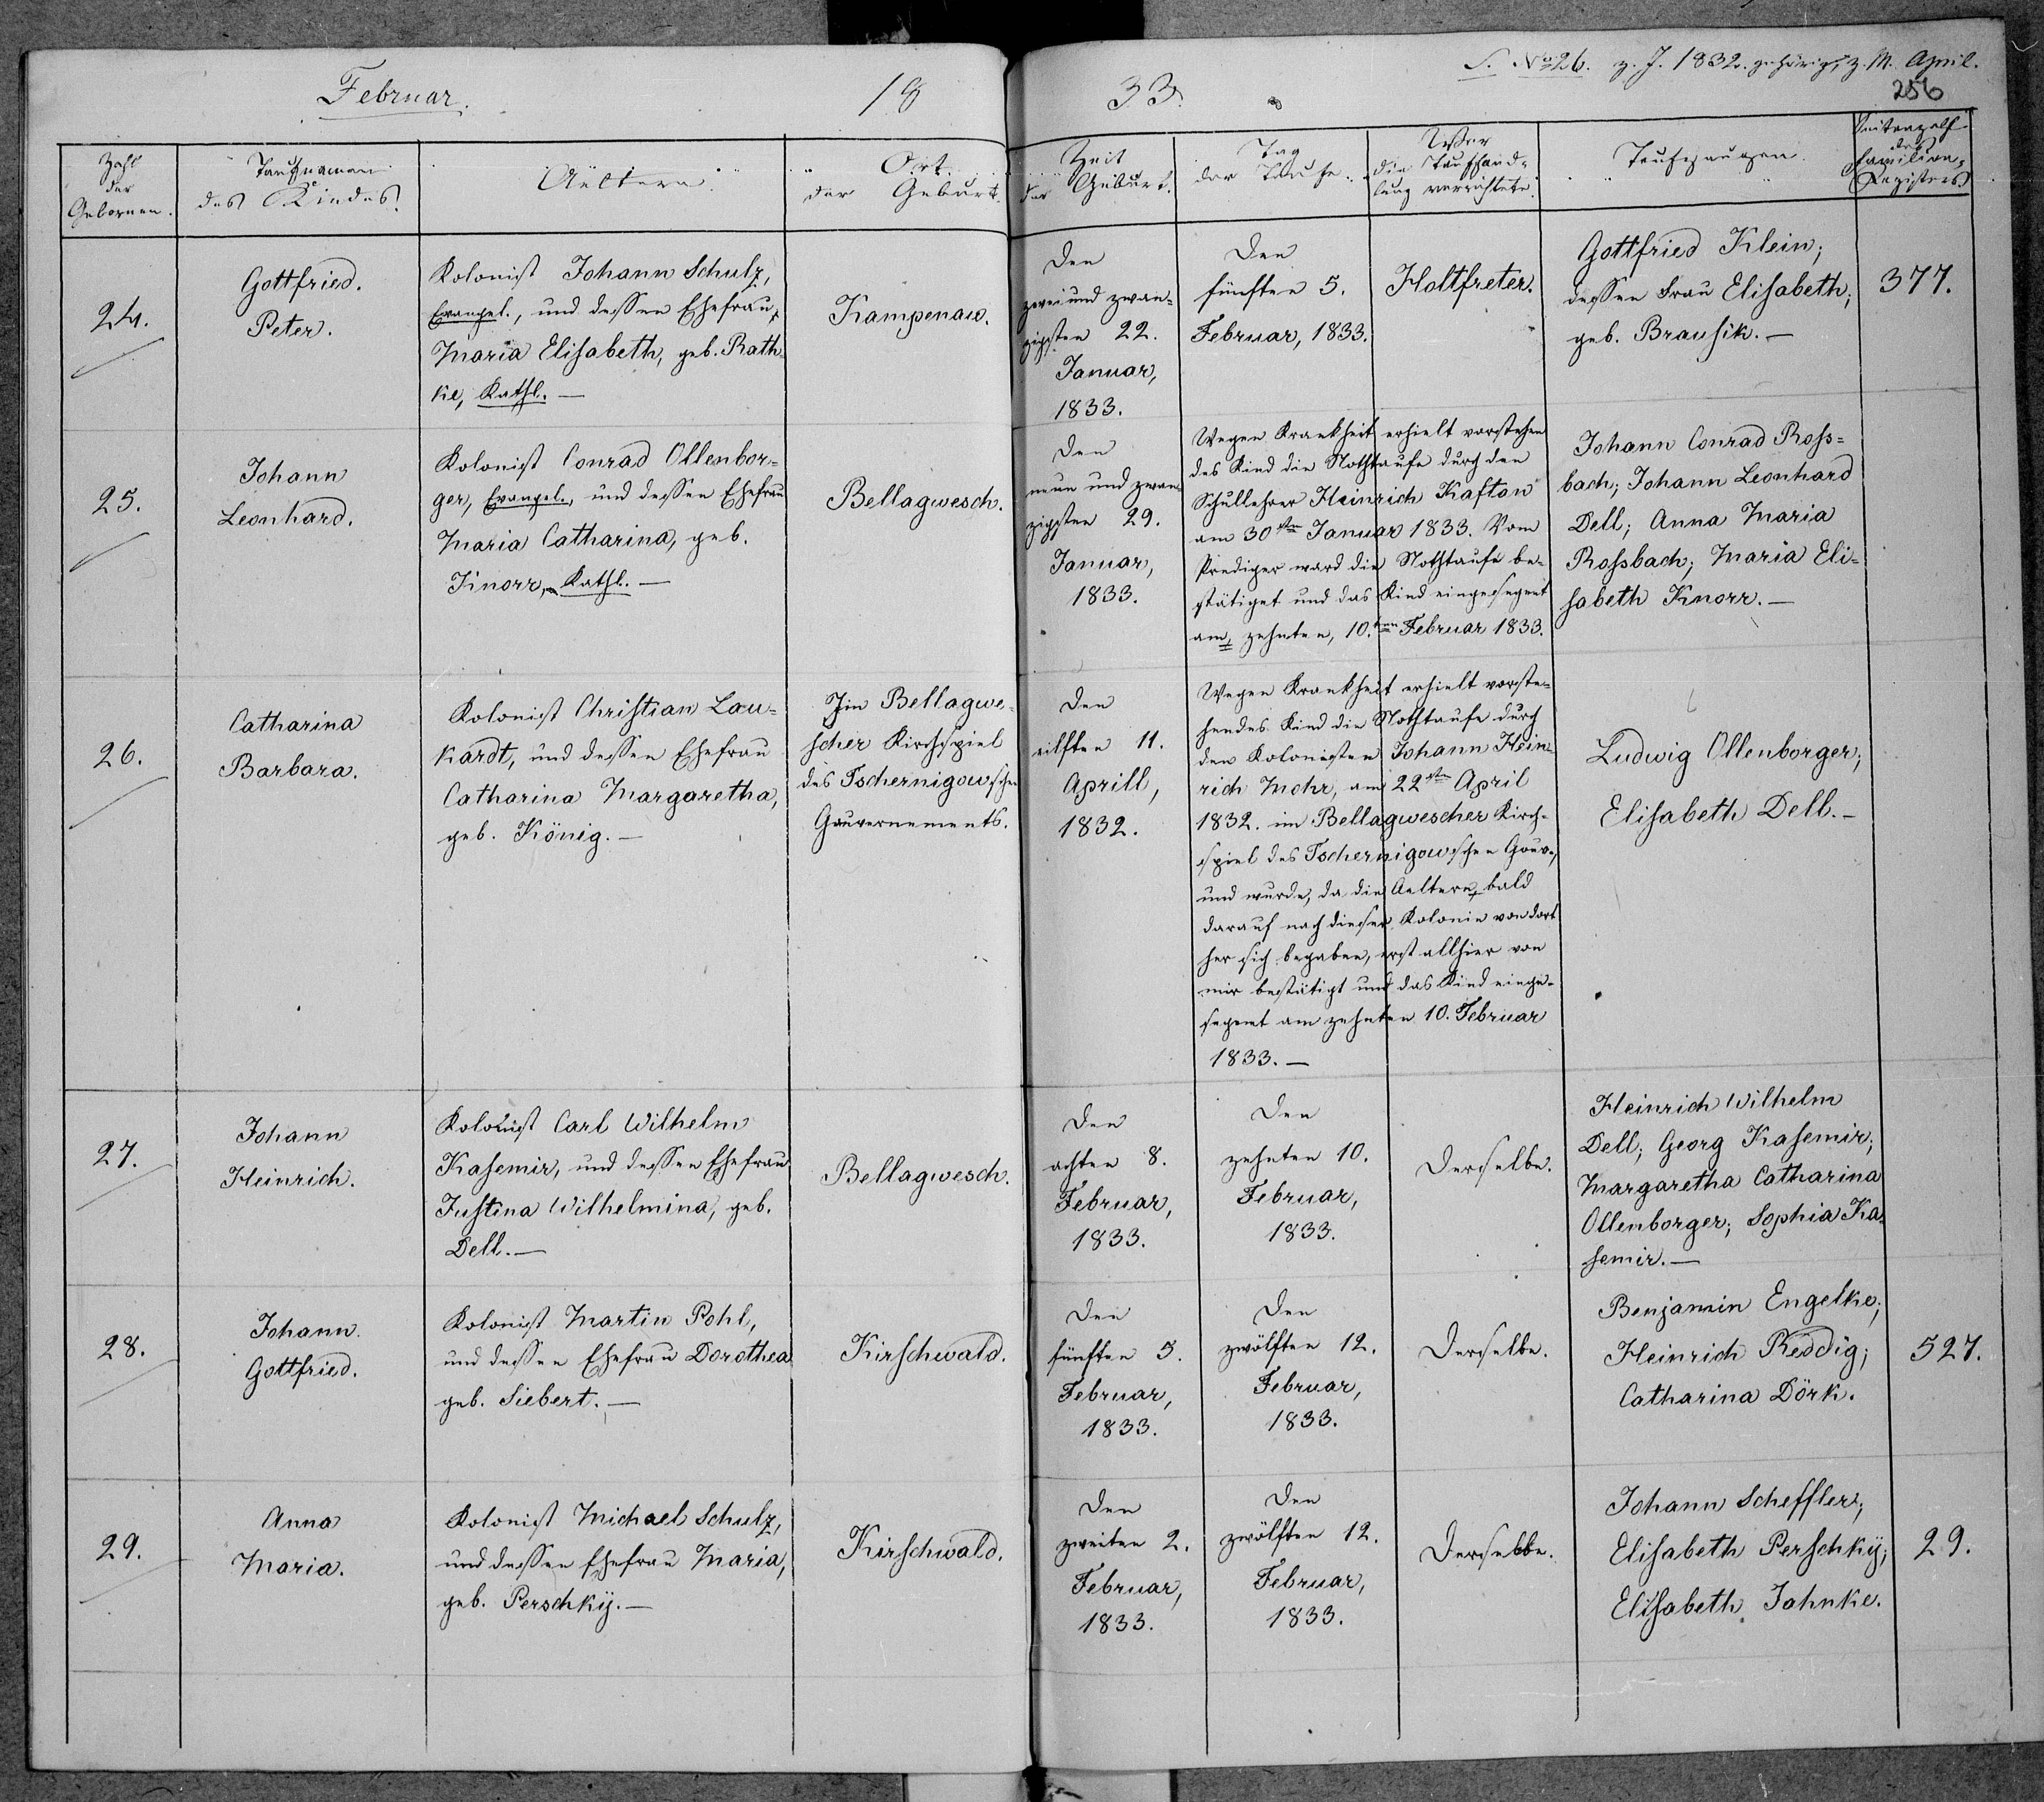 Februar.
18
33.
S. No 26. z. J. 1832. gehörig, z. M. April.
256
Zahl
der
Gebornen.
Taufnamen
des Kindes.
Aeltern.
Ort
der Geburt.
Zeit
der Geburt.
Tag
der Taufe.
Wer
die Taufhand-
lung verrichtete.
Taufzeugen.
Seitenzahl
des
Familien-
Registers.
24.
Gottfried.
Peter.
Kolonist Johann Schulz,
Evangel., und dessen Ehefrau,
Maria Elisabeth, geb. Rath-
ke, Kathl. —
Kampenau.
Den
zwei und zwan-
zigsten 22.
Januar,
1833.
Den
fünften 5.
Februar, 1833.
Holtfreter.
Gottfried Klein;
dessen Frau Elisabeth,
geb. Brausik. —
377.
25.
Johann
Leonhard.
Kolonist Conrad Ollenbor-
ger, Evangel., und dessen Ehefrau
Maria Catharina, geb.
Knorr, Kathl. —
Bellagwesch.
Den
neun und zwan-
zigsten 29.
Januar,
1833.
Wegen Krankheit erhielt vorstehen
des Kind die Nothtaufe durch den
Schullehrer Heinrich Kaftan
am 30sten Januar 1833. Vom
Prediger ward die Nothtaufe be-
stätiget und das Kind eingesegnet
am zehnten, 10.ten Februar 1833.
Johann Conrad Ross-
bach; Johann Leonhard
Dell; Anna Maria
Rossbach; Maria Eli-
sabeth Knorr. —
26.
Catharina
Barbara.
Kolonist Christian Lau-
kardt, und dessen Ehefrau
Catharina Margaretha,
geb. König. —
Im Bellagwe-
scher Kirchspiel
des Tschernigowschen
Gouvernements.
Den
eilften 11.
Aprill,
1832.
Wegen Krankheit erhielt vorste-
hendes Kind die Nothtaufe durch
den Kolonisten Johann Hein-
rich Mohr, am 22sten April
1832. im Bellagwescher Kirch-
spiel des Tschernigowschen Gouv.,
und wurde, da die Aeltern bald
darauf nach dieser Kolonie von dort
her sich begaben, erst allhier von
mir bestätigt und das Kind einge-
segnet am zehnten 10. Februar
1833. —
Ludwig Ollenborger;
Elisabeth Dell. —
27.
Johann
Heinrich.
Kolonist Carl Wilhelm
Kasemir, und dessen Ehefrau
Justina Wilhelmina, geb.
Dell. —
Bellagwesch.
Den
achten 8.
Februar,
1833.
Den
zehnten 10.
Februar,
1833.
Derselbe.
Heinrich Wilhelm
Dell; Georg Kasemir;
Margaretha Catharina
Ollenborger; Sophia Ka-
semir. —
28.
Johann
Gottfried.
Kolonist Martin Pohl,
und dessen Ehefrau Dorothea
geb. Siebert. —
Kirschwald.
Den
fünften 5.
Februar,
1833.
Den
zwölften 12.
Februar,
1833.
Derselbe.
Benjamin Engelke;
Heinrich Reddig;
Catharina Dörk.
527.
29.
Anna
Maria.
Kolonist Michael Schulz,
und dessen Ehefrau Maria,
geb. Perschkÿ. —
Kirschwald.
Den
zweiten 2.
Februar,
1833.
Den
zwölften 12.
Februar,
1833.
Derselbe.
Johann Scheffler;
Elisabeth Perschkÿ;
Elisabeth Jahnke.
29.